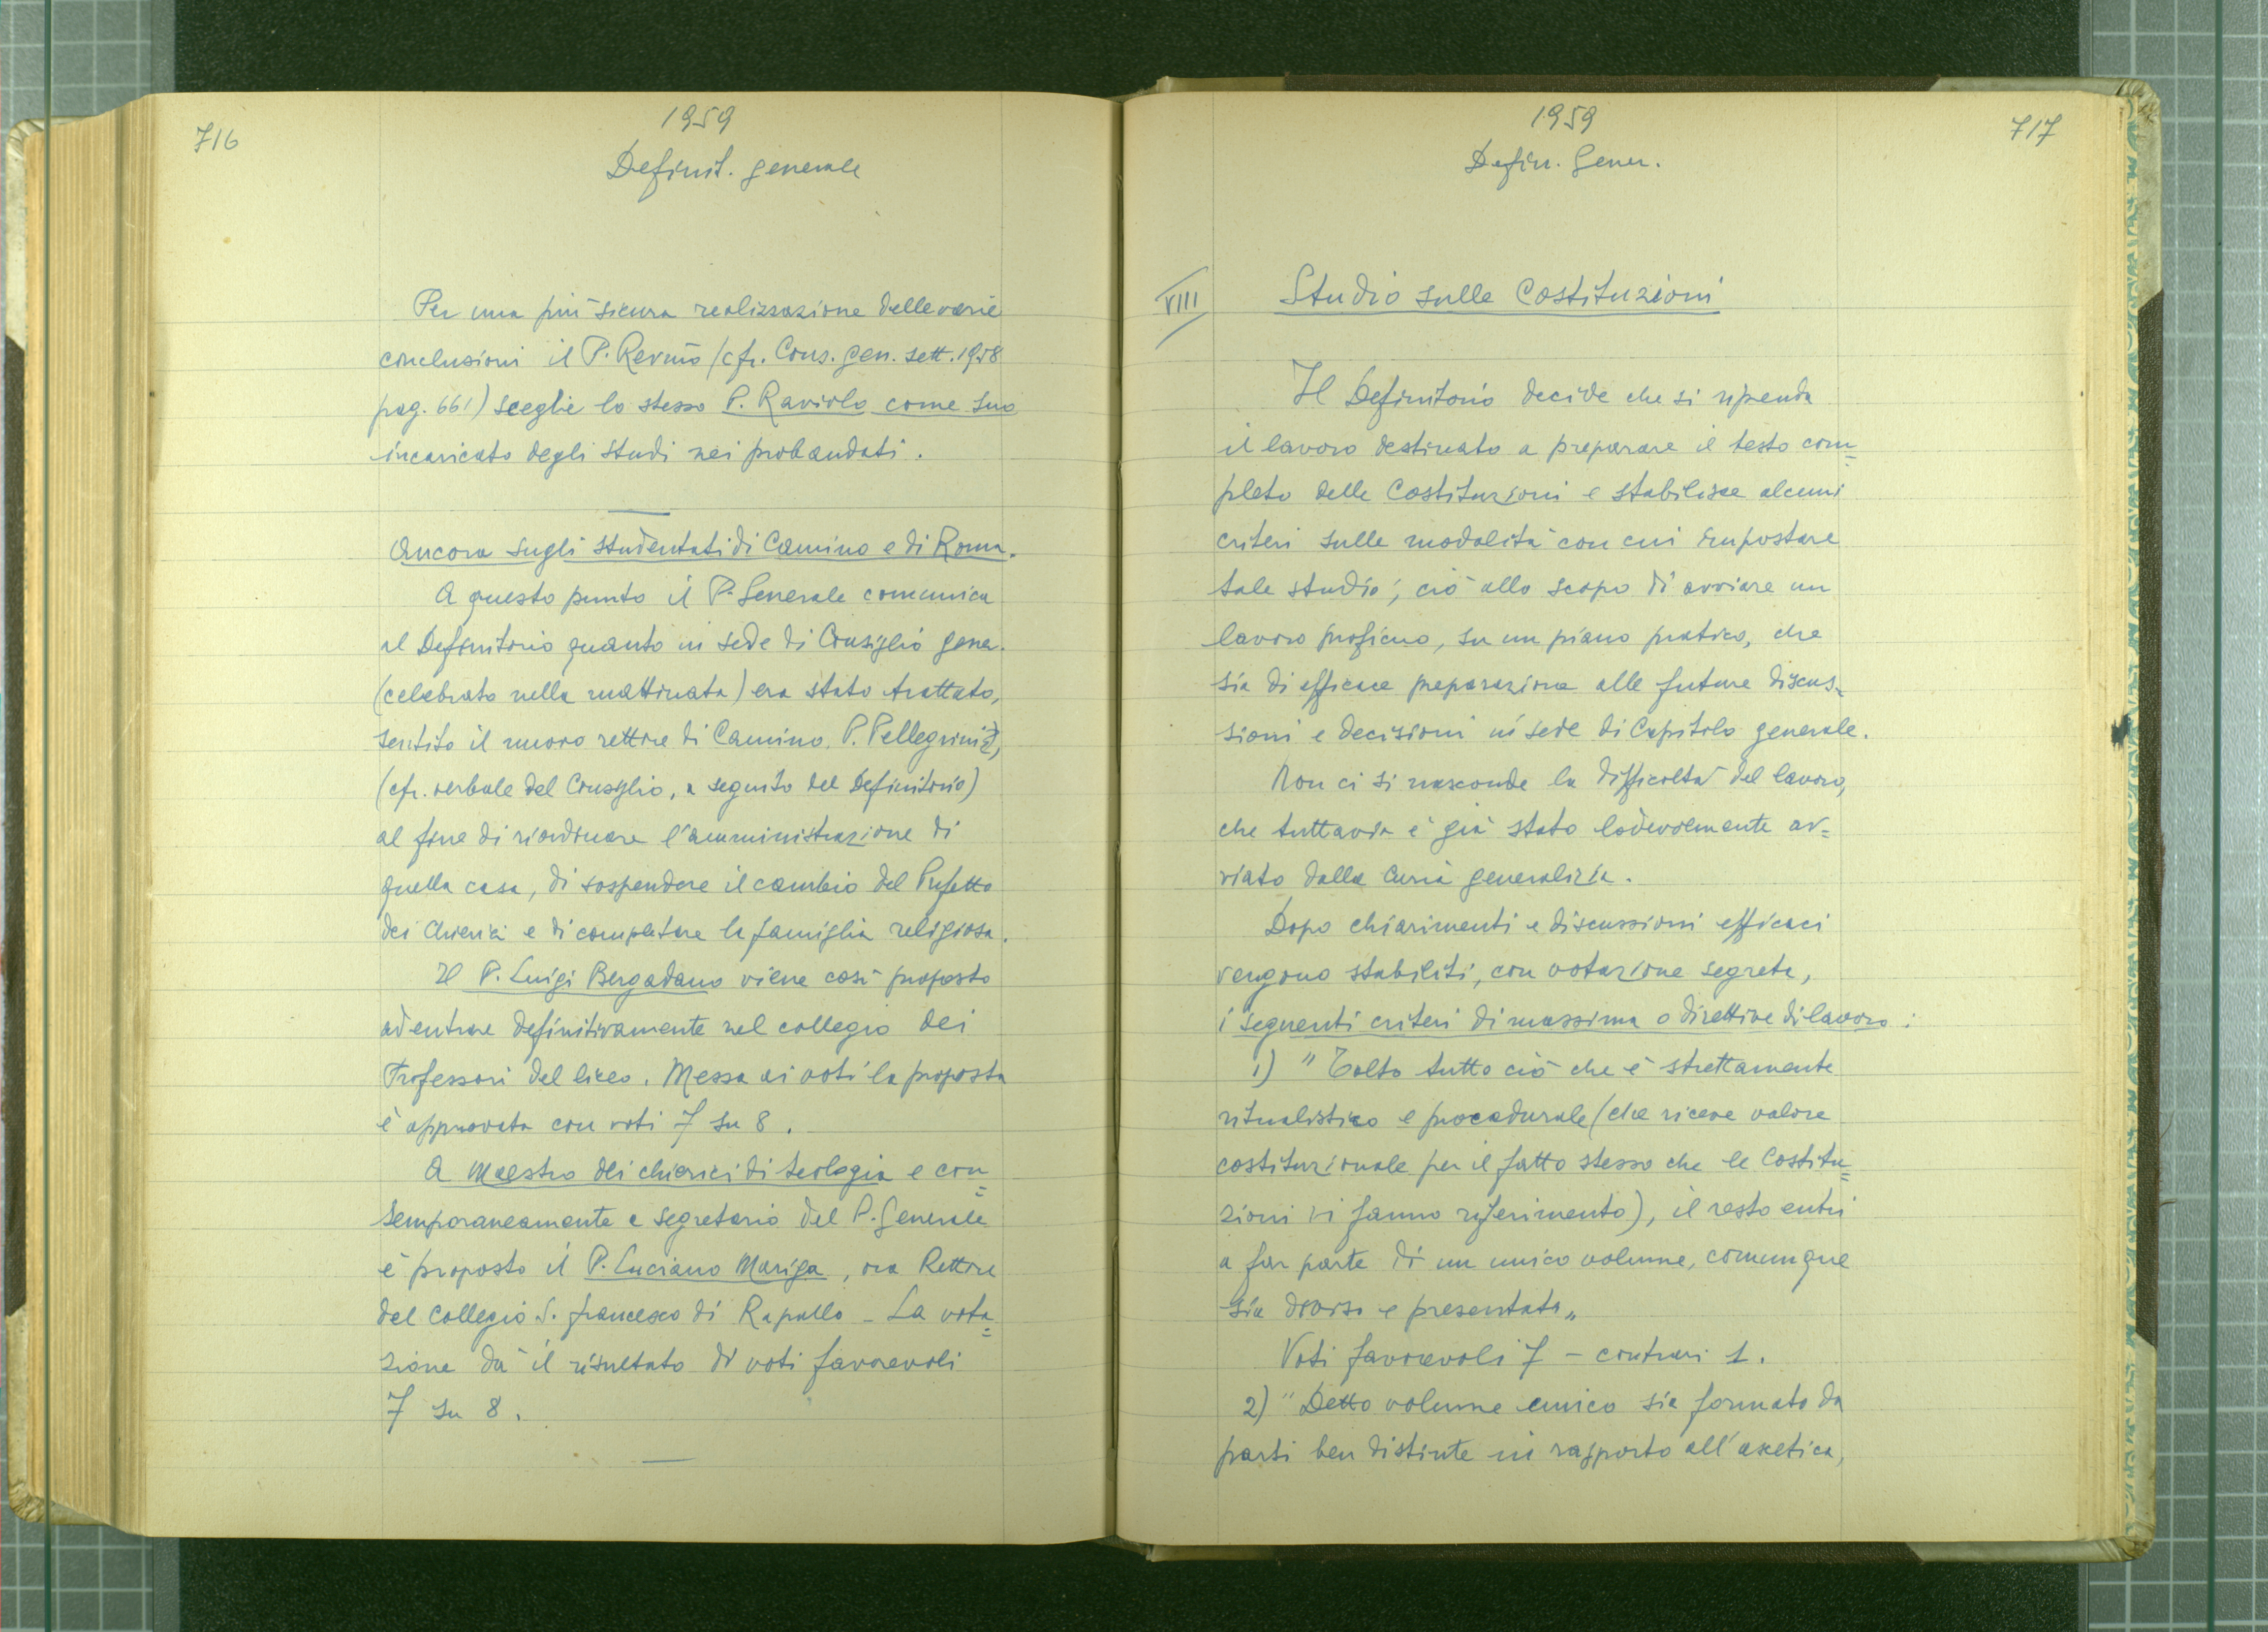 716
1959
Definit. generale
Per una più sicura realizzazione delle varie
conclusioni il P. Rev.mo (cfr. Cons. gen. sett. 1958
pag. 661) sceglie lo stesso P. Raviolo come suo
incaricato degli studi nei probandati.
Ancora sugli studentati di Camino e di Roma.
A questo punto il P. Generale comunica
al Definitorio quanto in sede di Consiglio gener.
(celebrato nella mattinata) era stato trattato,
sentito il nuovo rettore di Camino, P. Pellegrini
(cfr. verbale del Consiglio, a seguito del Definitorio)
al fine di riordinare l'amministrazione di
quella casa, di sospendere il cambio del Prefetto
dei Chierici e di completare la famiglia religiosa.
Il P. Luigi Bergadano viene così proposto
ad entrare definitivamente nel collegio dei
Professori del liceo. Messa ai voti la proposta
è approvata con voti 7 su 8.
A Maestro dei chierici di teologia e con=
temporaneamente a segretario del P. Generale
è proposto il P. Luciano Mariga, ora Rettore
del Collegio S. Francesco di Rapallo - La vota=
zione dà il risultato di voti favorevoli
7 su 8.
1959
Defin. Gener.
717
VIII
Studio sulle Costituzioni
Il Definitorio decide che si riprenda
il lavoro destinato a preparare il testo com=
pleto delle Costituzioni e stabilisce alcuni
criteri sulle modalità con cui impostare
tale studio; ciò allo scopo di avviare un
lavoro proficuo, su un piano pratico, che
sia di efficace preparazione alle future discus=
sioni e decisioni in sede di Capitolo generale.
Non ci si nasconde la difficoltà del lavoro,
che tuttavia è già stato lodevolmente av=
viato dalla Curia generalizia.
Dopo chiarimenti e discussioni efficaci
vengono stabiliti, con votazione segreta,
i seguenti criteri di massima o direttive di lavoro:
1) "Tolto tutto ciò che è strettamente
ritualistico e procedurale (che riceve valore
costituzionale per il fatto stesso che le Costitu=
zioni vi fanno riferimento), il resto entri
a far parte di un unico volume, comunque
sia diviso e presentato"
Voti favorevoli 7 - contrari 1.
2) "Detto volume unico sia formato da
parti ben distinte in rapporto all'ascetica,